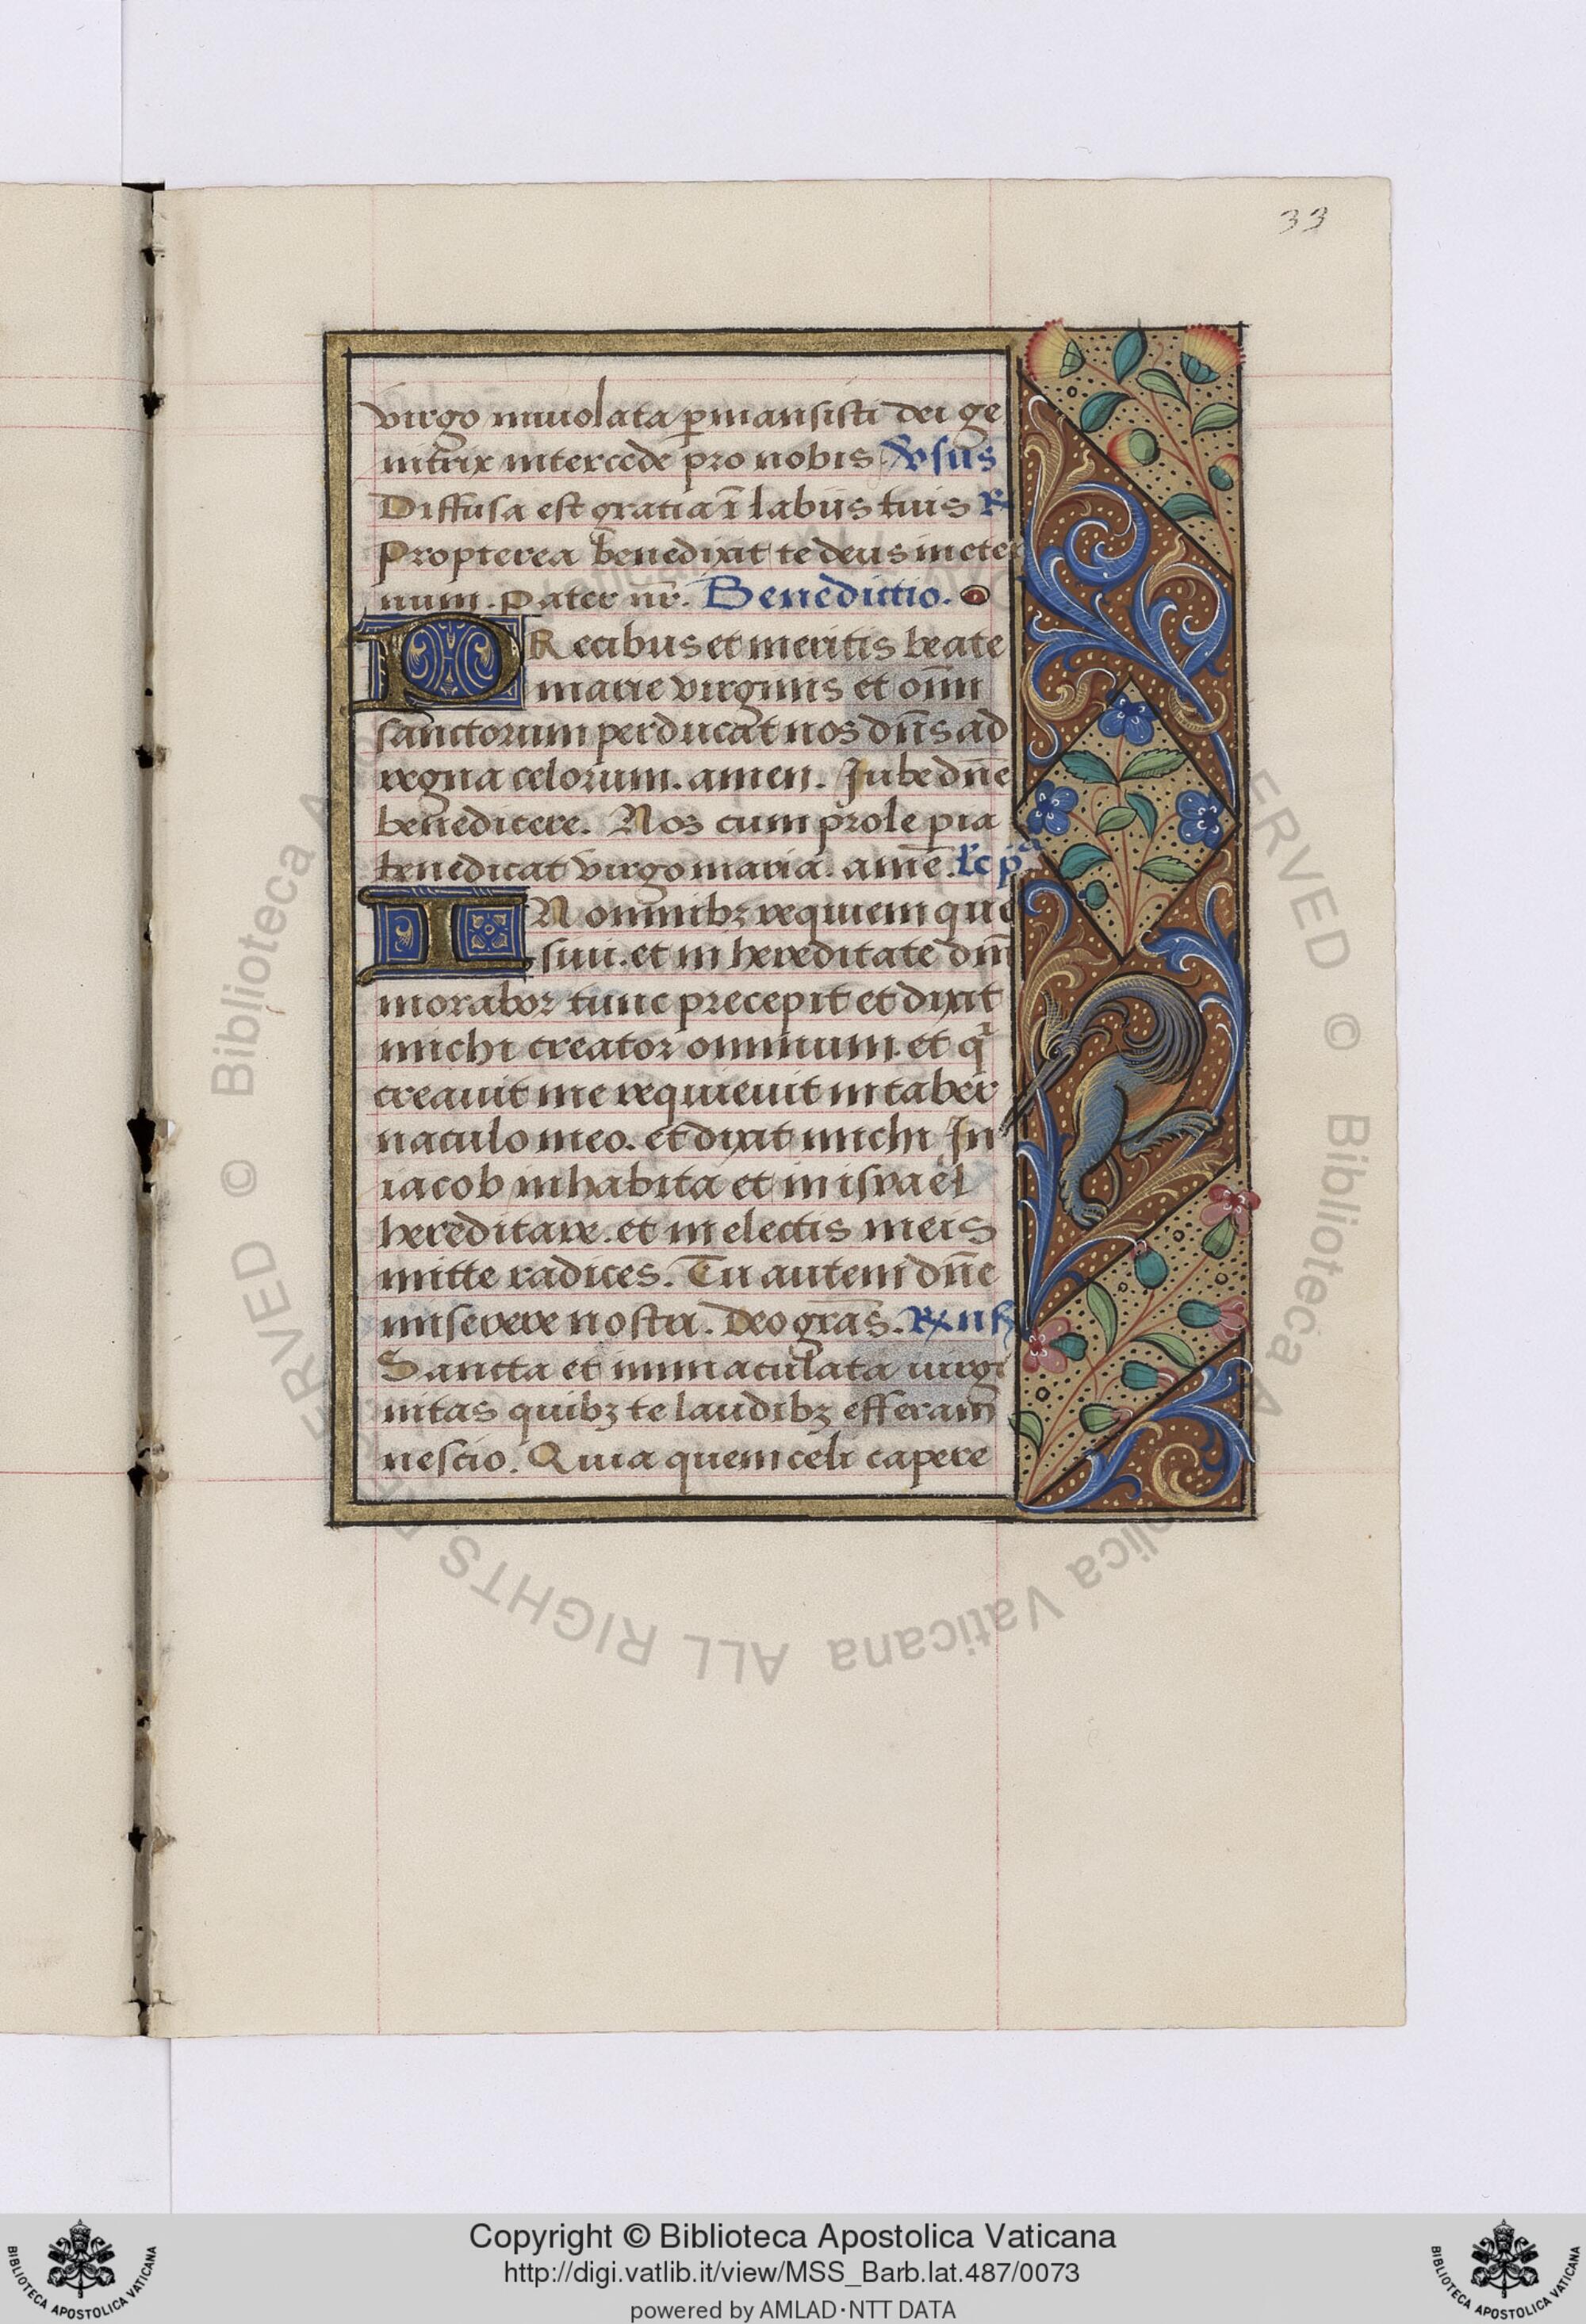 33
virgo inuiolata ꝑmansisti dei ge
nitrix intercede pro nobis. v̕sus
Diffusa est gratia ī labiis tuis R̕
Propterea benedixit te deus in eter
num. Pater nr̄. Benedictio.
PRecibus et meritis beate
marie virginis et oīm
sanctorum perducat nos dn̄s ad
regna celorum. amen. Jube dn̄e
benedicere. Nos cum prole pia
benedicat virgo maria. amē. Lc̄ pᵃ
IN omnibꝫ requiem que
siui. et in hereditate dn̄i
morabor tunc precepit et dixit
michi creator omnium. et q̄
creauit me requieuit in taber
naculo meo. et dixit michi In
iacob inhabita et in israel
hereditare. et in electis meis
mitte radices. Tu autem dn̄e
miserere nostri. Deo grās. R̕
Sancta et immaculata uirgi
nitas quibꝫ te laudibꝫ efferam
nescio. Quia quem celi capere
© Biblioteca Apostolica Vaticana ALL RIGHTS RESERVED
Copyright © Biblioteca Apostolica Vaticana
http://digi.vatlib.it/view/MSS_Barb.lat.487/0073
powered by AMLAD·NTT DATA
BIBLIOTECA APOSTOLICA VATICANA
BIBLIOTECA APOSTOLICA VATICANA